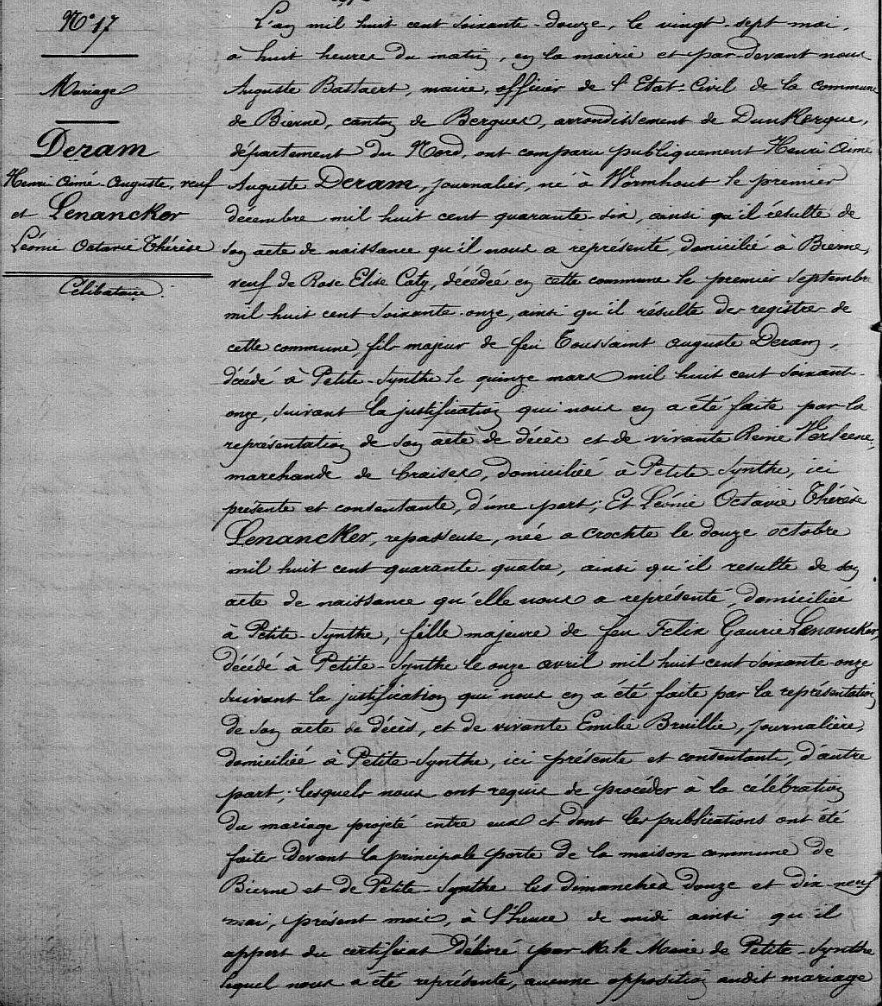 N° 17
Mariage
Deram
Henri Aimé Auguste, veuf
et Lenancker
Léonie Octavie Thérèse
Célibataire.
L'an mil huit cent soixante-douze, le vingt-sept mai,
à huit heures du matin, en la mairie et par-devant nous
Auguste Bastaert, maire, officier de l'Etat-Civil de la commune
de Bierne, canton de Bergues, arrondissement de Dunkerque,
département du Nord, ont comparu publiquement Henri Aimé
Auguste Deram, journalier, né à Wormhout le premier
décembre mil huit cent quarante-six, ainsi qu'il résulte de
son acte de naissance qu'il nous a représenté, domicilié à Bierne,
veuf de Rose Elise Caty, décédée en cette commune le premier septembre
mil huit cent soixante-onze, ainsi qu'il résulte des registres de
cette commune, fils majeur de feu Toussaint Auguste Deram,
décédé à Petite-Synthe le quinze mars mil huit cent soixante-
onze, suivant la justification qui nous en a été faite par la
représentation de son acte de décès et de vivante Reine
marchande de braises, domiciliée à Petite-Synthe, ici
présente et consentante, d'une part; Et Léonie Octavie Thérèse
Lenancker, repasseuse, née à Crochte le douze octobre
mil huit cent quarante-quatre, ainsi qu'il résulte de son
acte de naissance qu'elle nous a représenté, domiciliée
à Petite-Synthe, fille majeure de feu Felix Lenancker,
décédé à Petite-Synthe le onze avril mil huit cent soixante-onze
suivant la justification qui nous en a été faite par la représentation
de son acte de décès, et de vivante Emilie Bruillie, journalière,
domiciliée à Petite-Synthe, ici présente et consentante, d'autre
part; lesquels nous ont requis de procéder à la célébration
du mariage projeté entre eux et dont les publications ont été
faites devant la principale porte de la maison commune de
Bierne et de Petite-Synthe les dimanches douze et dix-neuf
mai, présent mois, à l'heure de midi ainsi qu'il
appert du certificat délivré par M. le Maire de Petite-Synthe
lequel nous a été représenté, aucune opposition audit mariage